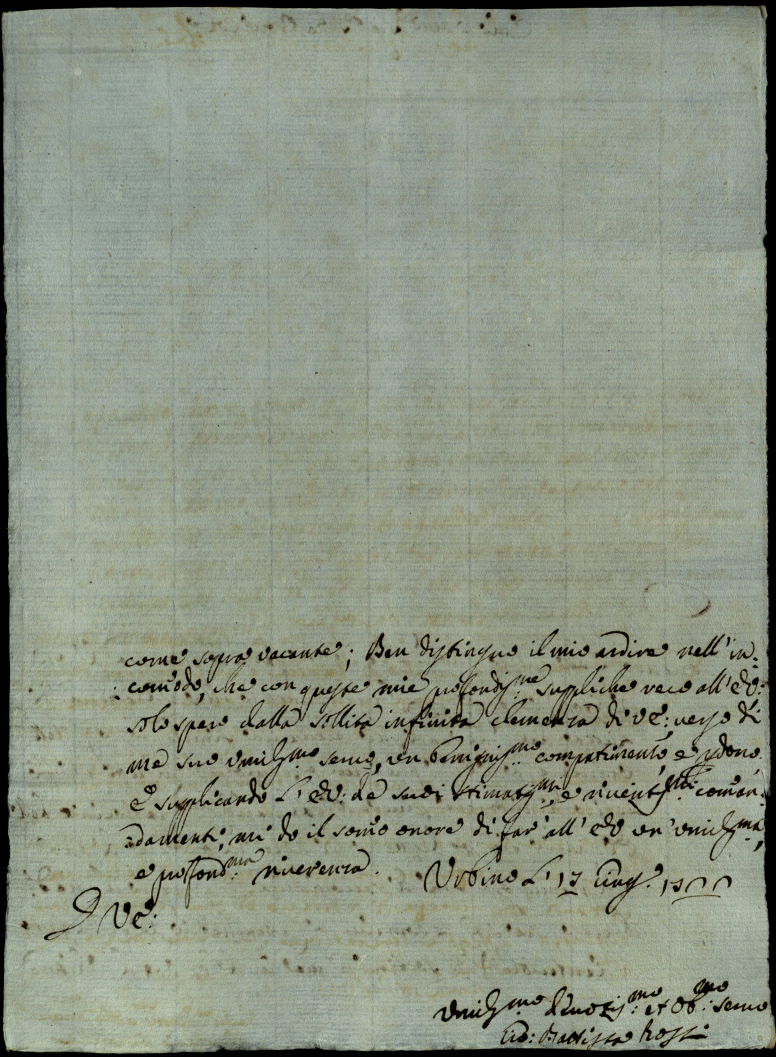 come sopra vacante; Ben distinguo il mio ardire nell' in=
:comodo, che con queste mie profondis.me suppliche reco all' E.V:
solo spero dalla sollita infinita clemenza di V.E: verso di
me suo umiliss.mo servo, un benigniss.mo compatimento, e perdono.
E supplicando L' E.V: de suoi stimatiss.mi, e riveritiss.mi coman=
=damenti, mi do il somo onore di far all' E.V un' umiliss.ma,
e profond.ma riverenza. Urbino L' 17 Giug.
D V.E:
Umiliss.mo Devotis.mo et Ob.mo servo
Gio: Battista Rossi